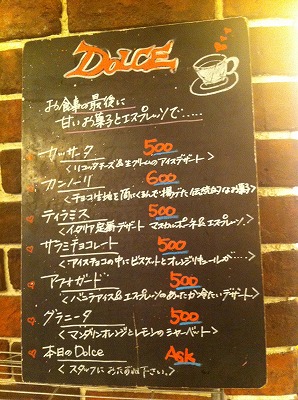 DOLCE
お食事の最後に
甘いお菓子とエスプレッソで.....
カッサータ 500
<リコッタチーズ&生クリームのアイスデザート>
カンノーリ 600
<チョコ生地を筒にくるんで揚げた伝統的なお菓子>
ティラミス 500
<イタリア定番デザート マスカルポーネ&エスプレッソ>
サラミチョコレート 500
<アイスチョコの中にビスケットとオレンジリキュールが…>
アフォガード 500
<バニラアイス&エスプレッソのあったか冷たいデザート>
グラニータ 500
<マンダリンオレンジとレモンのシャーベット>
本日のDolce Ask
<スタッフにおたずね下さい。>